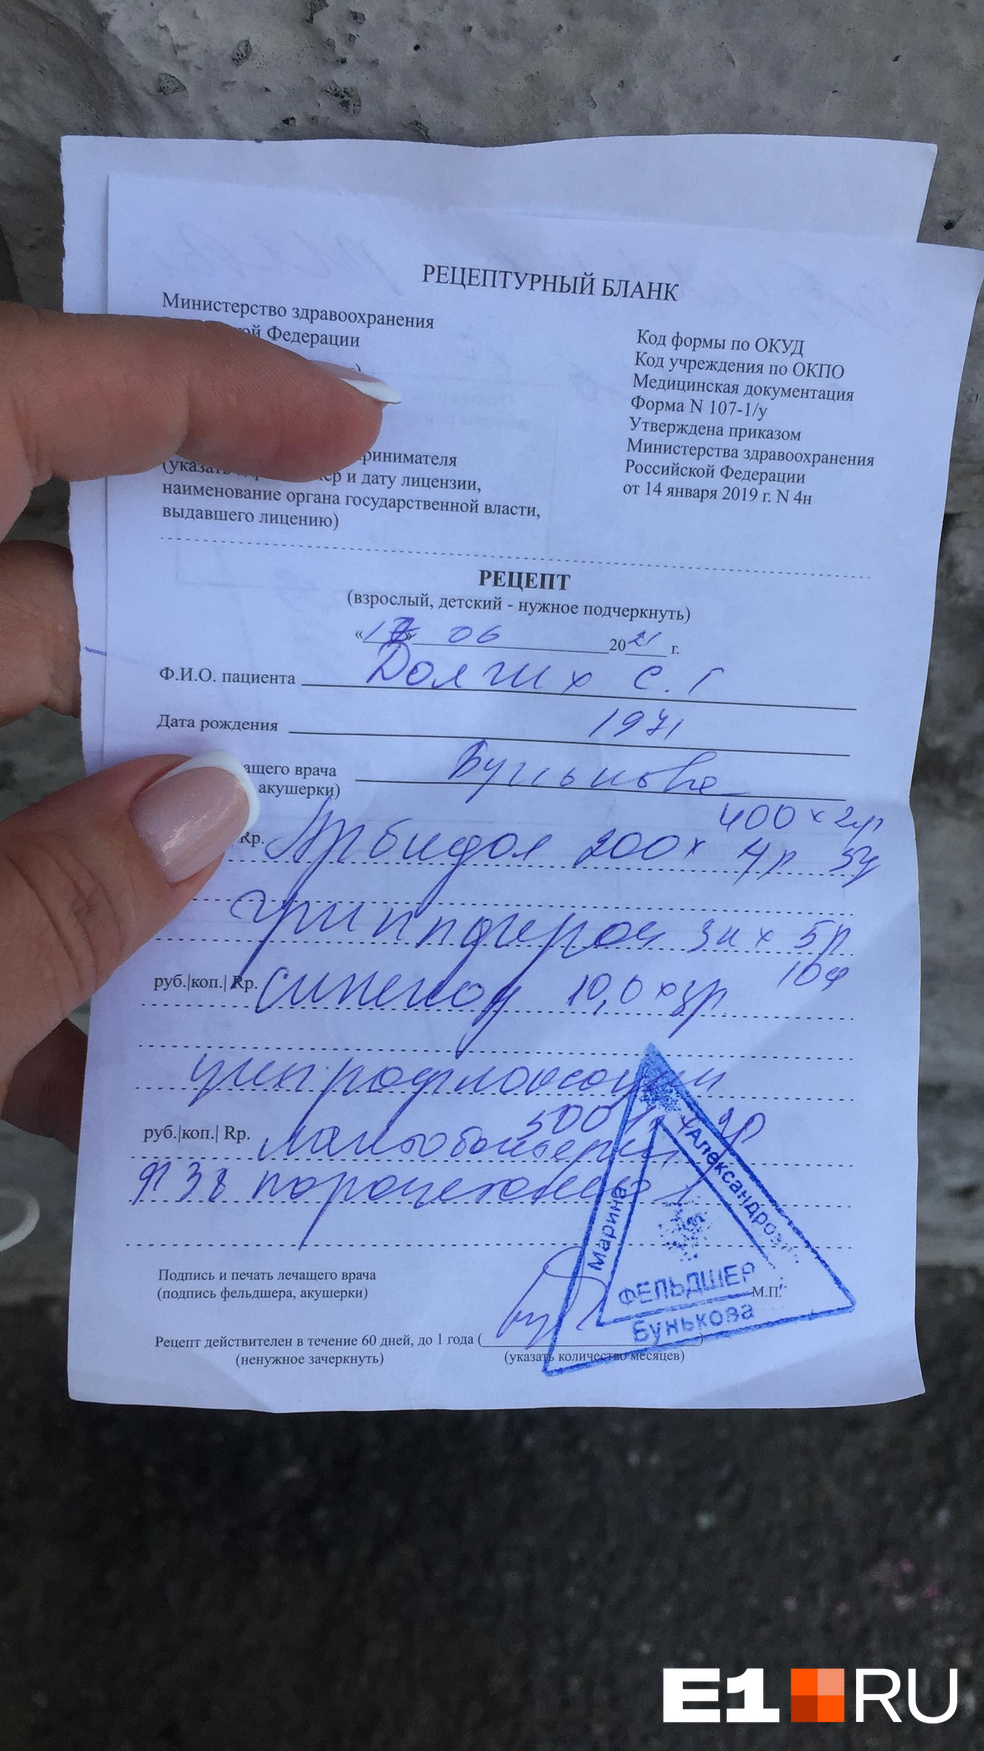 РЕЦЕПТУРНЫЙ БЛАНК
Министерство здравоохранения
Федерации
Код формы по ОКУД
Код учреждения по ОКПО
Медицинская документация
Форма N 107-1/у
Утверждена приказом
Министерства здравоохранения
Российской Федерации
от 14 января 2019 г. N 4н
(указать и дату лицензии,
наименование органа государственной власти,
выдавшего лицению)
РЕЦЕПТ
(взрослый, детский - нужное подчеркнуть)
06 2021 г.
Ф.И.О. пациента Долгих С. Г
Дата рождения 1971
врача Бунькова
акушерки)
400 х 2р
Rp. Арбидол 200х 4р 5д
гриппферон 3к х 5р
10д
руб.|коп.| Rp. синекод 10,0 х 3р
ципрофлоксацин
500 х 2р
руб.|коп.| Rp.
парацетамол
Марина Александровна
ФЕЛЬДШЕР
Бунькова
Подпись и печать лечащего врача
(подпись фельдшера, акушерки)
М.П.
Рецепт действителен в течение 60 дней, до 1 года (
(ненужное зачеркнуть)
(указать количество месяцев)
E1 RU